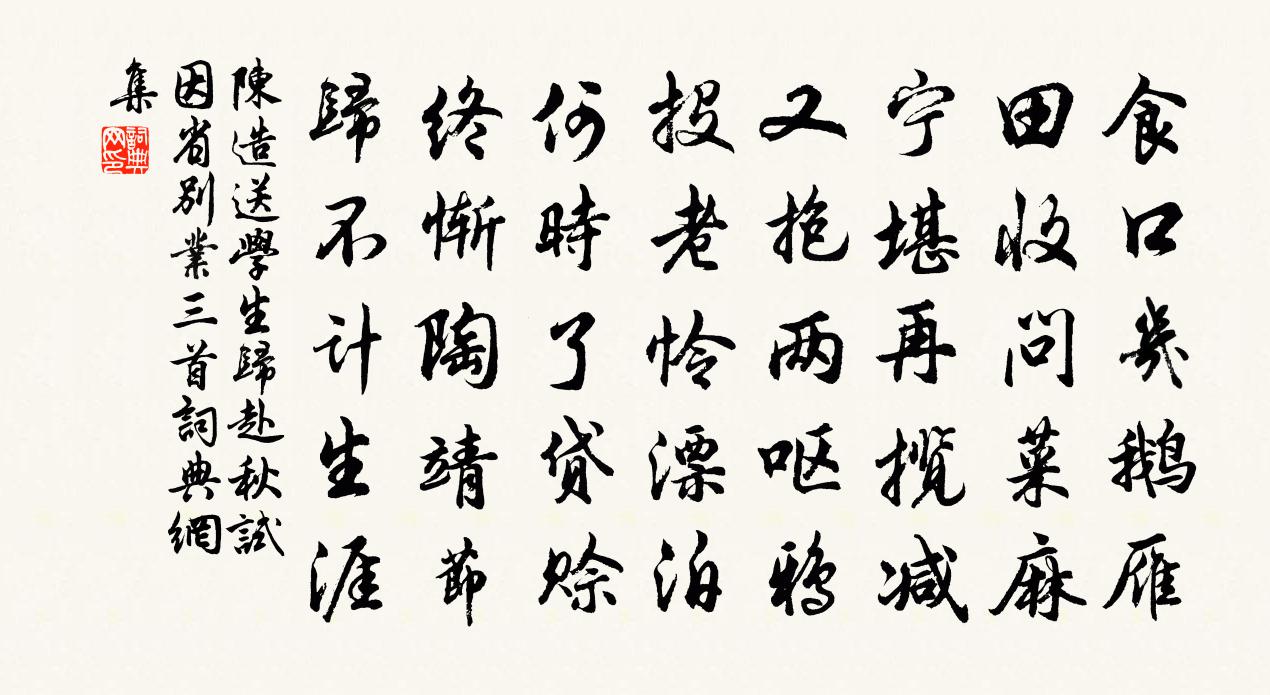 食口幾鹅雁
田收问菜麻
宁堪再揽减
又抱两呕鸦
投老怜漂泊
何時了贷赊
终惭陶靖節
歸不计生涯
陳造送學生歸赴秋試
因省别業三首詞典網
集
詞典網印